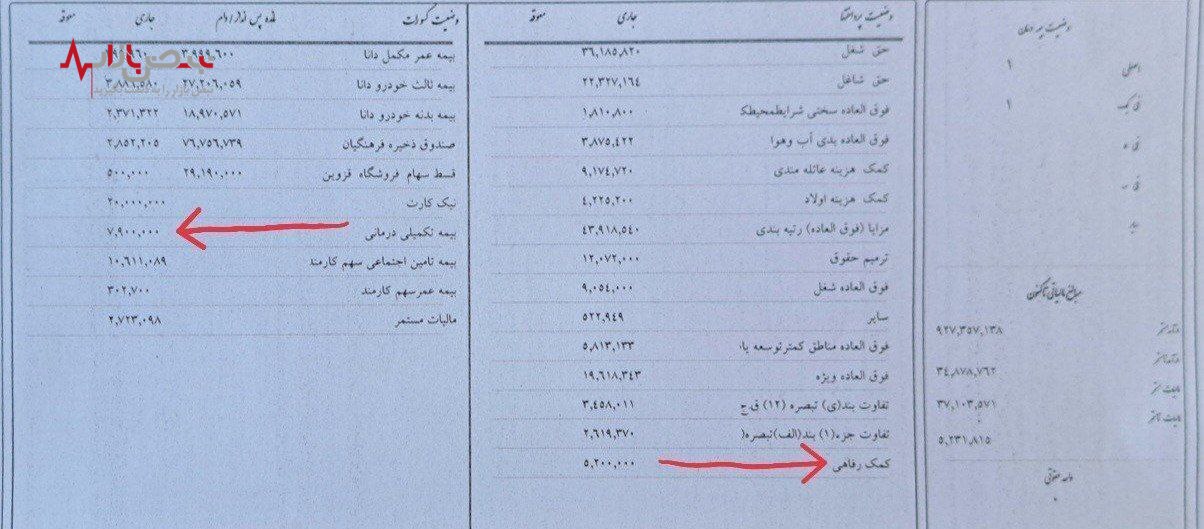 وضعیت بیمه درمان
اصلی ۱
مبالغ مالیاتی تاکنون
۹۲۷,۳۵۷,۱۳۸
۳۴,۸۷۸,۷۶۲
۳۷,۱۰۳,۵۷۱
۵,۲۳۱,۸۱۵
وضعیت پرداختها جاری معوقه
حق شغل ۳۶,۱۸۵,۸۲۰
حق شاغل ۲۲,۳۲۷,۱۶۴
فوق العاده سختی شرایطمحیطک ۱,۸۱۰,۸۰۰
فوق العاده بدی آب وهوا ۳,۸۷۵,۴۲۲
کمک هزینه عائله مندی ۹,۱۷۴,۷۲۰
کمک هزینه اولاد ۴,۲۲۵,۲۰۰
مزایا (فوق العاده) رتبه بندی ۴۳,۹۱۸,۵۴۰
ترمیم حقوق ۱۲,۰۷۲,۰۰۰
فوق العاده شغل ۹,۰۵۴,۰۰۰
سایر ۵۲۲,۹۴۹
فوق العاده مناطق کمترتوسعه یا، ۵,۸۱۳,۱۳۳
فوق العاده ویژه ۱۹,۶۱۸,۳۴۳
تفاوت بند(ی) تبصره (۱۲) ق.ج ۳,۴۵۸,۰۱۱
تفاوت جزء(۱) بند(الف)تبصره( ۲,۶۱۹,۳۷۰
کمک رفاهی ۵,۲۰۰,۰۰۰
وضعیت کسورات مانده پس انداز/وام جاری معوقه
بیمه عمر مکمل دانا ۳,۹۹۹,۶۰۰
بیمه ثالث خودرو دانا ۲۷,۲۰۶,۰۵۹ ۳,۸۸۶,۵۸۰
بیمه بدنه خودرو دانا ۱۸,۹۷۰,۵۷۱ ۲,۳۷۱,۳۲۲
صندوق ذخیره فرهنگیان ۷۶,۷۵۶,۷۳۹ ۲,۸۵۲,۲۰۵
قسط سهام فروشگاه قزوین ۲۹,۱۹۰,۰۰۰ ۵۰۰,۰۰۰
نیک کارت ۲۰,۰۰۰,۰۰۰
بیمه تکمیلی درمانی ۷,۹۰۰,۰۰۰
بیمه تامین اجتماعی سهم کارمند ۱۰,۶۱۱,۰۸۹
بیمه عمرسهم کارمند ۳۰۲,۷۰۰
مالیات مستمر ۲,۷۲۳,۰۹۸
نبض بازار